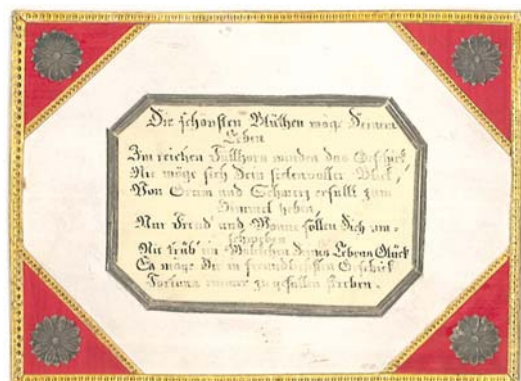 Die schönsten Blüthen möge Deinem
Leben
Im reichen Füllhorn winden das Geschick
Nie möge sich Dein seelenvoller Blick,
Von Gram und Schmerz erfüllt zum
Himmel heben.
Nur Freud' und Wonne sollen Dich um=
schweben
Nie trüb' ein Wölkchen Deines Lebens Glück
Es möge Dir im freundlichsten Geschick
Fortuna immer zu gefallen streben.